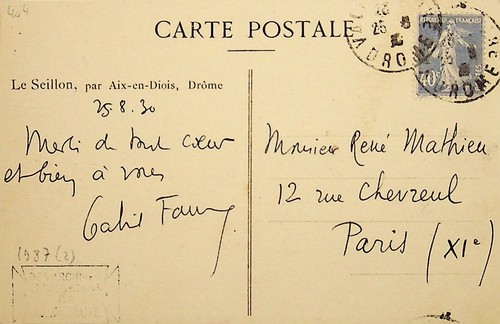 404
CARTE POSTALE
Le Seillon, par Aix-en-Diois, Drôme
25.8.30
Merci de tout cœur
et bien à vous
Gabriel Faure
Monsieur René Mathieu
12 rue Chevreul
Paris (XIe)
RÉPUBLIQUE FRANÇAISE
40c
DROME
DROME
1987 (2)